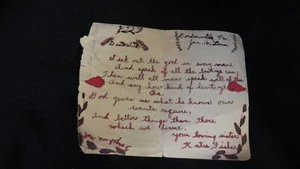 Gordonville, Pa.
Jan. 16,
I seek out the good in every man,
And speak of all the best you can,
Then will all men speak well of thee
And say how kind of heart you
be.
God gives me what he knows our
wants require,
And better things than those
which we desire.
your loving sister
Katie Fisher